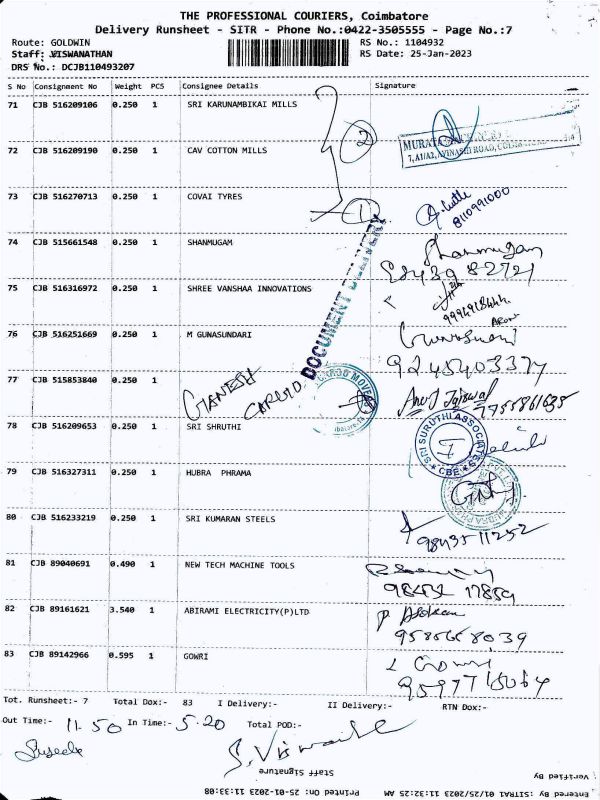 THE PROFESSIONAL COURIERS, Coimbatore
Delivery Runsheet - SITR - Phone No.:0422-3505555 - Page No.:7
Route: GOLDWIN RS No.: 1104932
Staff: VISWANATHAN RS Date: 25-Jan-2023
DRS No.: DCJB110493207
S No Consignment No Weight PCS Consignee Details Signature
71 CJB 516209106 0.250 1 SRI KARUNAMBIKAI MILLS
2
72 CJB 516209190 0.250 1 CAV COTTON MILLS
73 CJB 516270713 0.250 1 COVAI TYRES
1
8110991000
74 CJB 515661548 0.250 1 SHANMUGAM
Shanmugam
75 CJB 516316972 0.250 1 SHREE VANSHAA INNOVATIONS
DOCUMENT DELIVERY
76 CJB 516251669 0.250 1 M GUNASUNDARI
Gunasundari
77 CJB 515853840 0.250 1
GANESH CARGO
78 CJB 516209653 0.250 1 SRI SHRUTHI
SRI SURUTHI ASSOCIATE
CBE
79 CJB 516327311 0.250 1 HUBRA PHRAMA
80 CJB 516233219 0.250 1 SRI KUMARAN STEELS
9843511252
81 CJB 89040691 0.490 1 NEW TECH MACHINE TOOLS
82 CJB 89161621 3.540 1 ABIRAMI ELECTRICITY(P)LTD
P Asokan
9585668039
83 CJB 89142966 0.595 1 GOWRI
Gowri
9597715064
Tot. Runsheet:- 7 Total Dox:- 83 I Delivery:- II Delivery:- RTN Dox:-
Out Time:- 11.50 In Time:- 5.20 Total POD:-
Staff Signature
Verified By
Printed On: 25-01-2023 11:33:08
Entered By: SITRA1 01/25/2023 11:32:25 AM